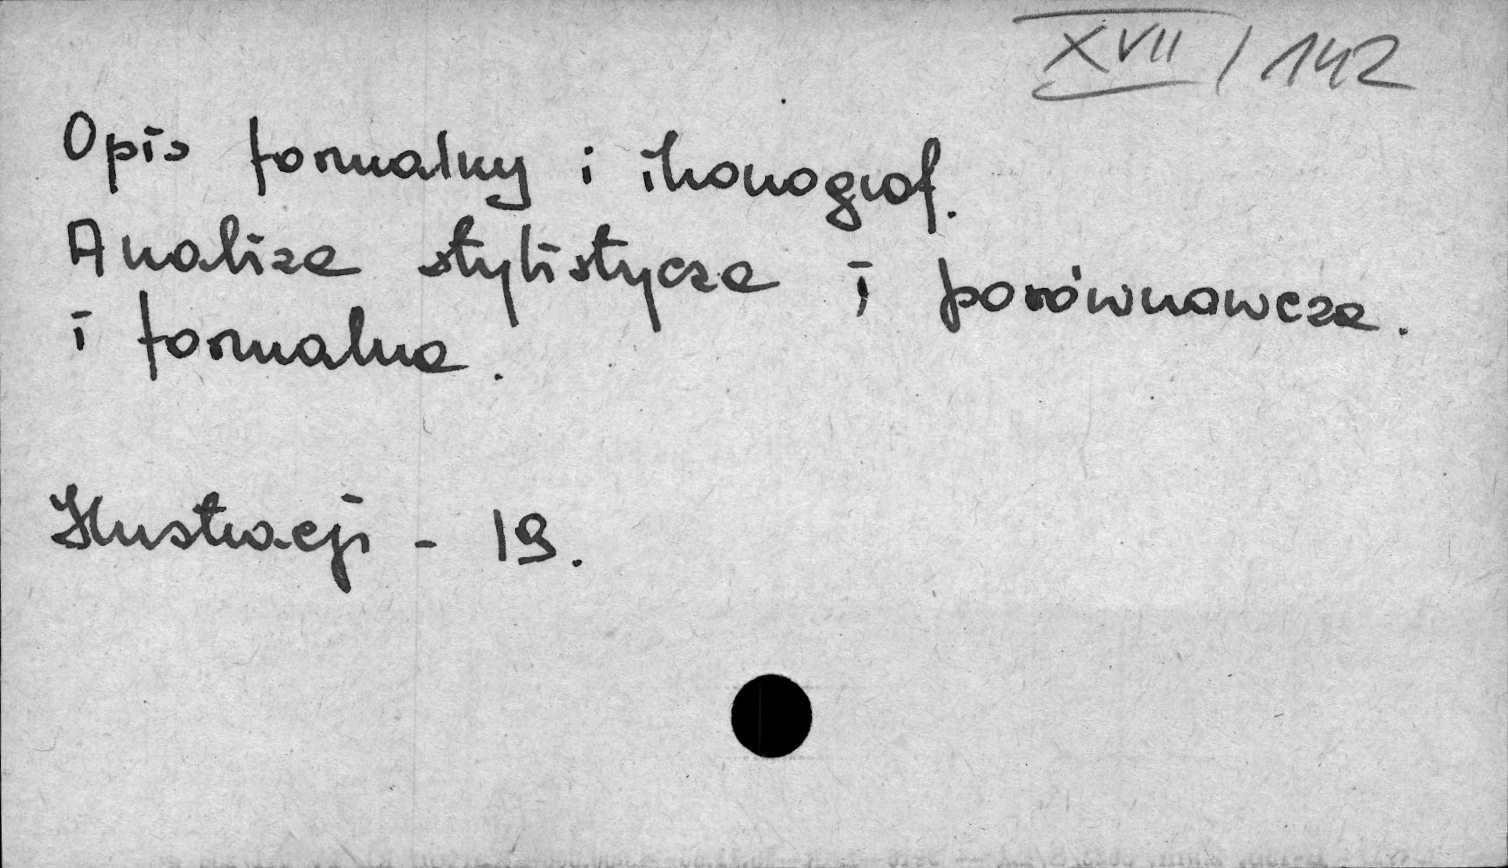 XVII / 142
Opis formalny i ikonograf.
Analiza stylistycza i porównawcza.
i formalna.
Ilustracji - 19.